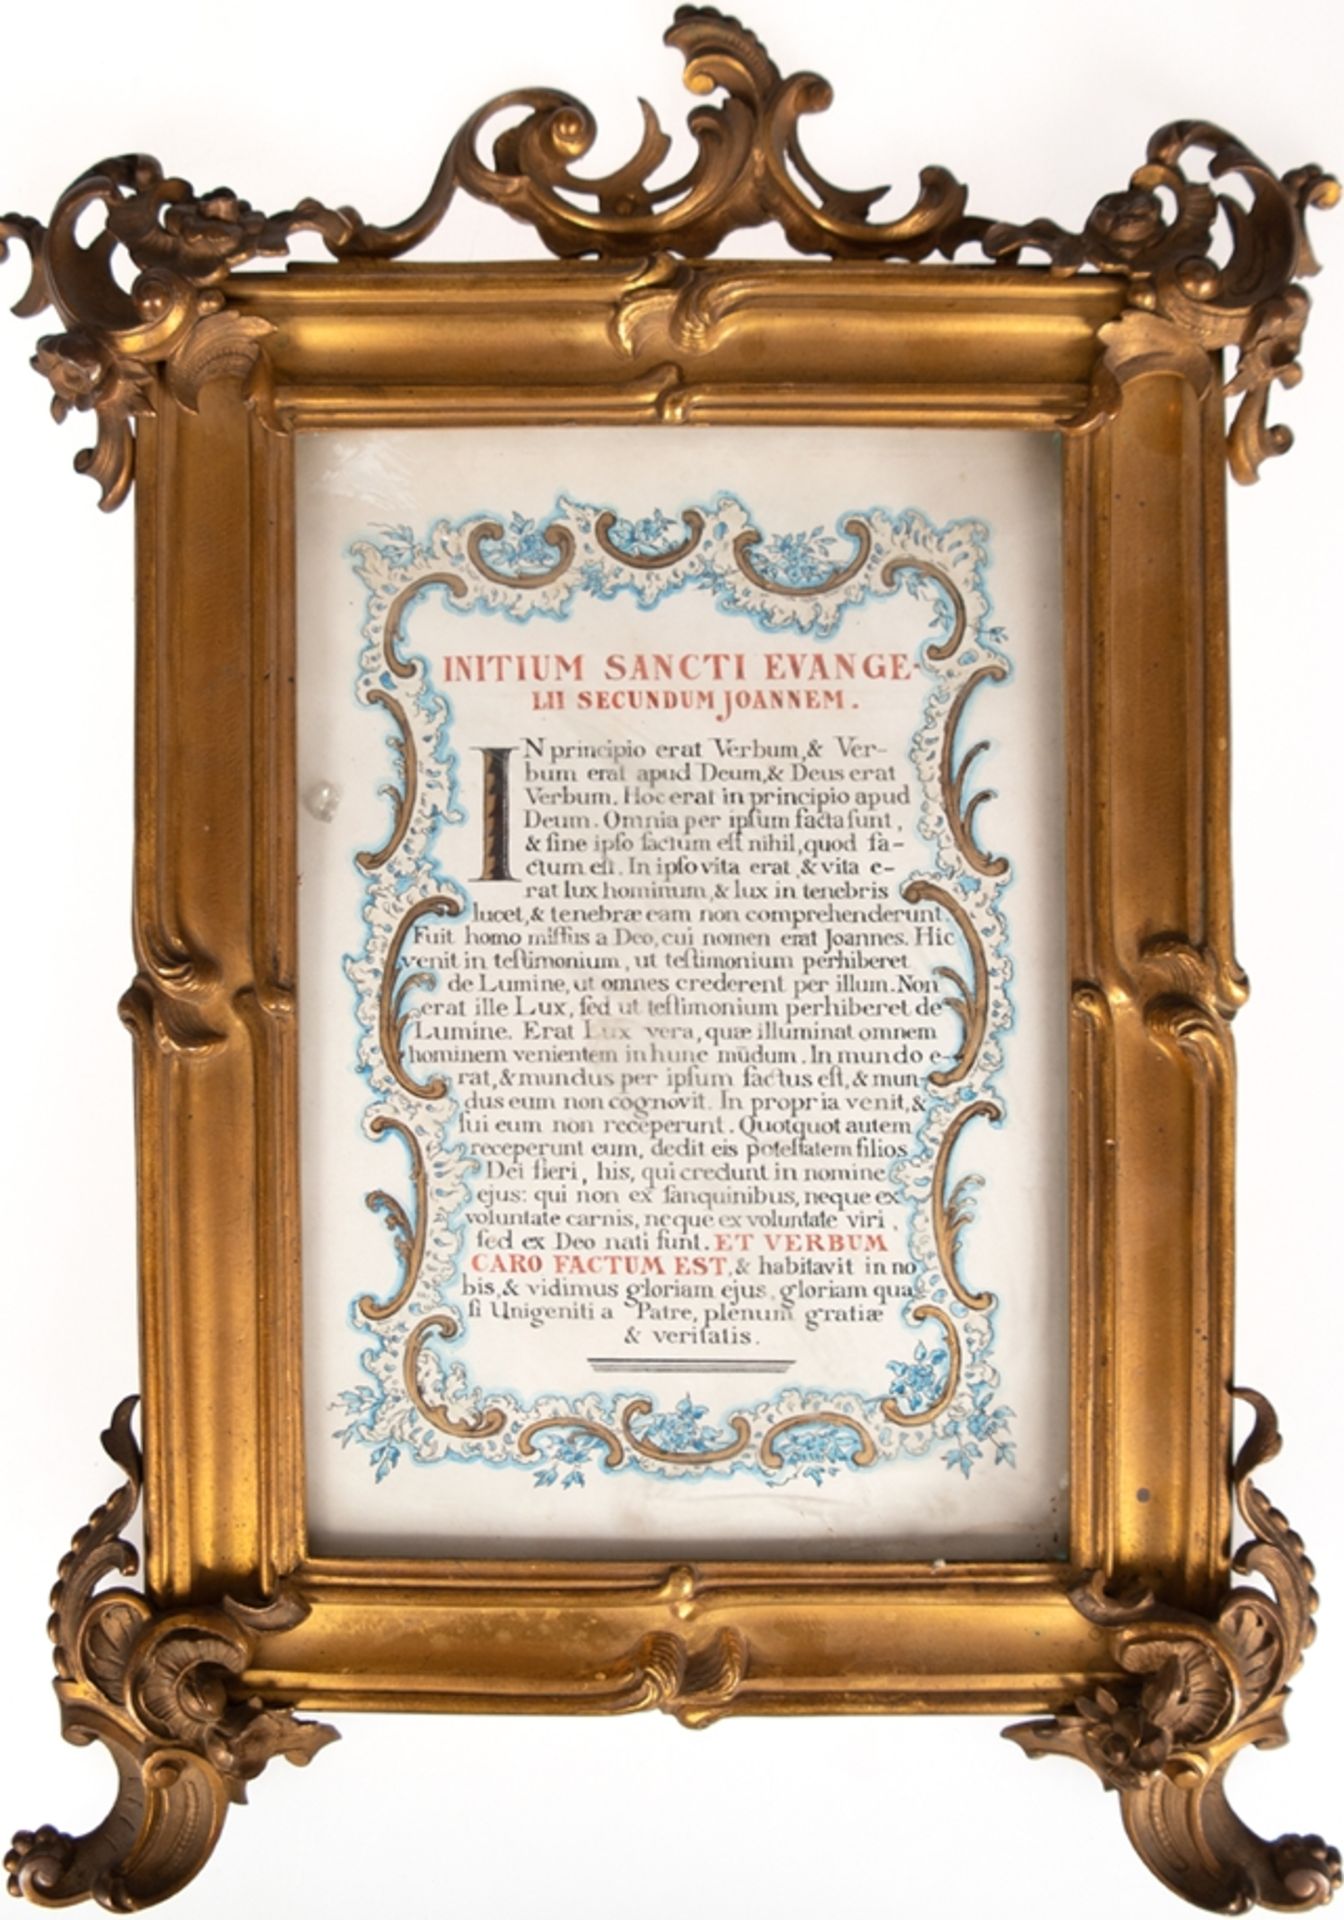 INITIUM SANCTI EVANGE-
LII SECUNDUM JOANNEM.
IN principio erat Verbum, & Ver-
bum erat apud Deum, & Deus erat
Verbum. Hoc erat in principio apud
Deum. Omnia per ipſum facta ſunt,
& ſine ipſo factum eſt nihil, quod fa-
ctum eſt. In ipſo vita erat, & vita e-
rat lux hominum, & lux in tenebris
lucet, & tenebræ eam non comprehenderunt.
Fuit homo miſſus a Deo, cui nomen erat Joannes. Hic
venit in teſtimonium, ut teſtimonium perhiberet
de Lumine, ut omnes crederent per illum. Non
erat ille Lux, ſed ut teſtimonium perhiberet de
Lumine. Erat Lux vera, quæ illuminat omnem
hominem venientem in hunc mūdum. In mundo e-
rat, & mundus per ipſum factus eſt, & mun-
dus eum non cognovit. In propria venit, &
ſui eum non receperunt. Quotquot autem
receperunt eum, dedit eis poteſtatem filios
Dei fieri, his, qui credunt in nomine
ejus: qui non ex ſanquinibus, neque ex
voluntate carnis, neque ex voluntate viri,
ſed ex Deo nati ſunt. ET VERBUM
CARO FACTUM EST, & habitavit in no
bis, & vidimus gloriam ejus, gloriam qua
ſi Unigeniti a Patre, plenum gratiæ
& veritatis.